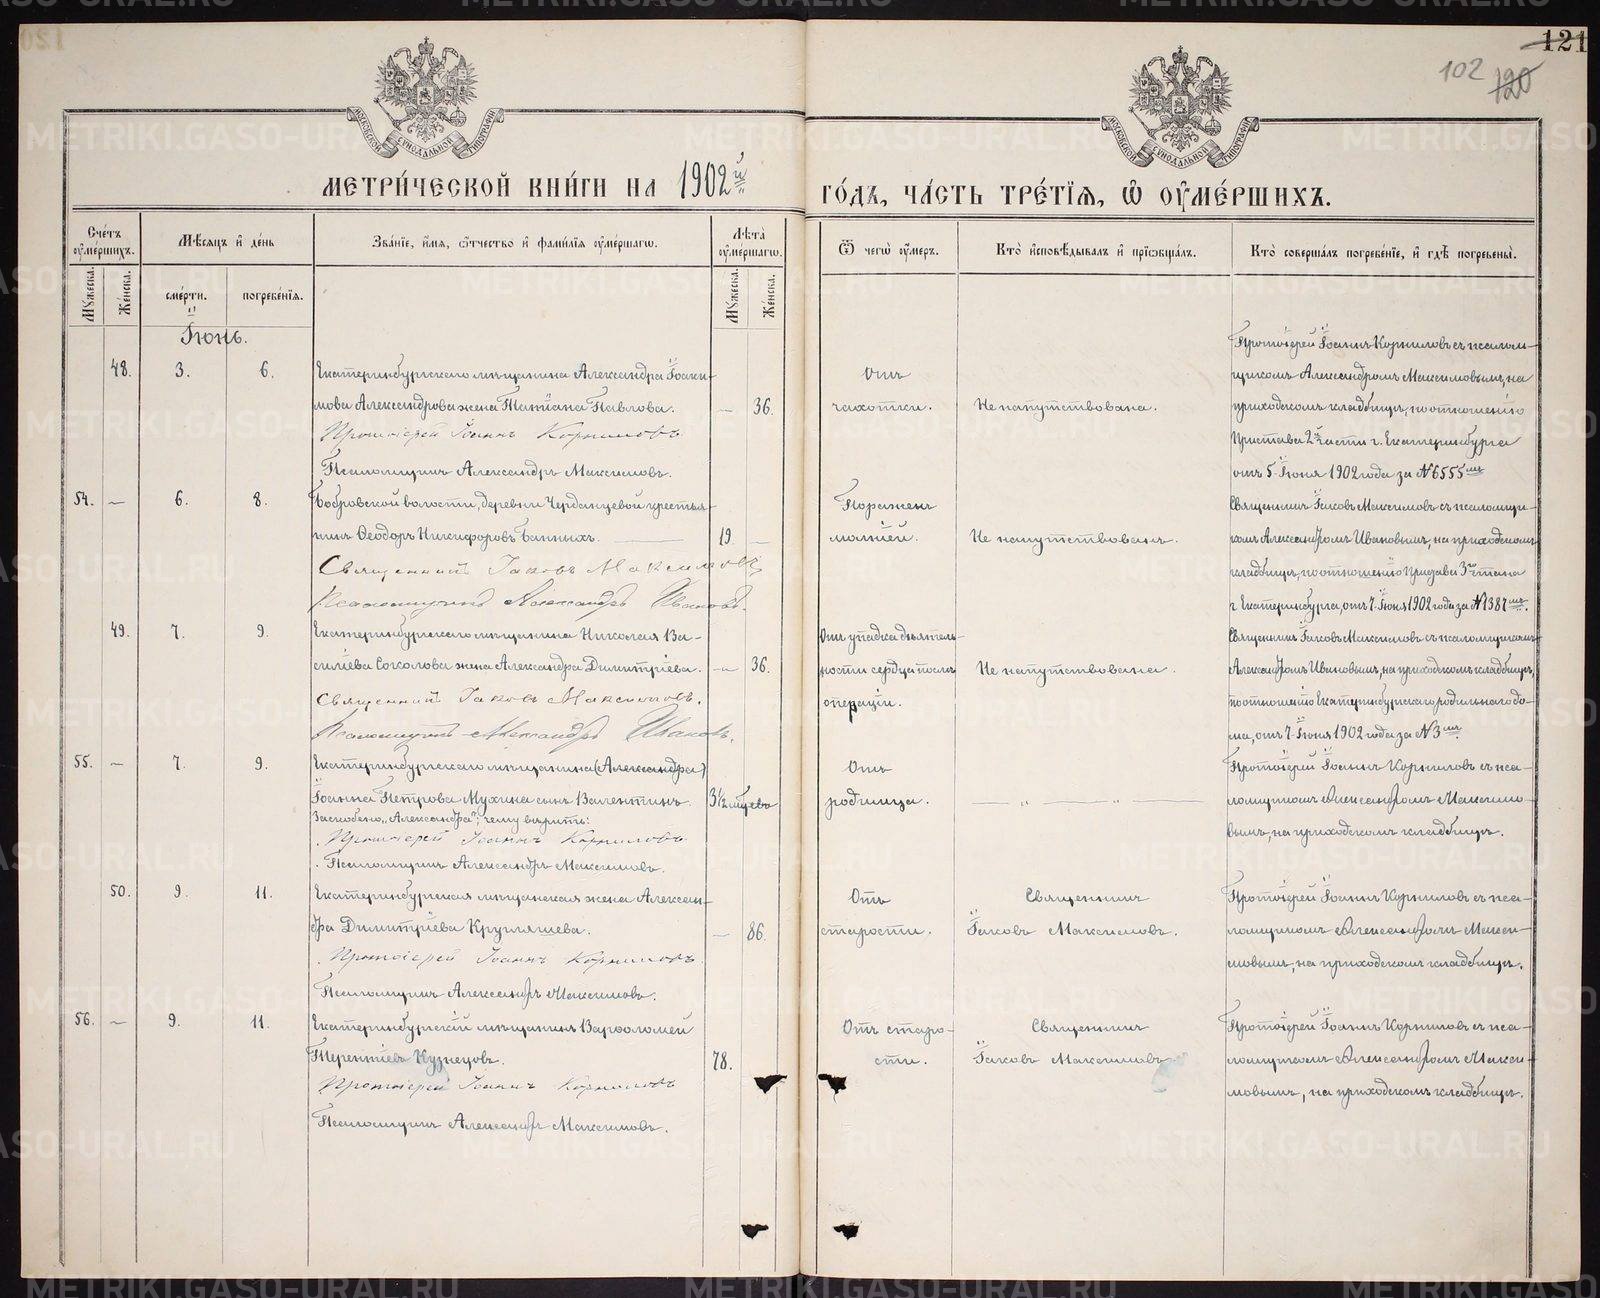 121
102 120
МОСКОВСКОЙ СѴНОДАЛЬНОЙ ТИПОГРАФІИ
МОСКОВСКОЙ СѴНОДАЛЬНОЙ ТИПОГРАФІИ
МЕТРИ́ЧЕСКОЙ КНИ́ГИ НА 1902й
ГО́ДЪ, ЧА́СТЬ ТРЕ́ТЇѦ, Ѡ҆ ОУ҆МЕ́РШИХЪ.
Сче́тъ оу҆ме́ршихъ.
Мꙋжеска.
Же́нска.
Мѣ́сѧцъ и҆ де́нь
сме́рти.
погребе́нїѧ.
Зва́нїе, и҆́мѧ, ѻ҆́тчество и҆ фами́лїѧ оу҆ме́ршагѡ.
Лѣ́та оу҆ме́ршагѡ.
Мꙋжеска.
Же́нска.
Ѿ чегѡ̀ оу҆́меръ.
Кто̀ и҆сповѣ́дывалъ и҆ прїѡбща́лъ.
Кто̀ соверша́лъ погребе́нїе, и҆ гдѣ̀ погребены̀.
Іюнь.
48. 3. 6.
Екатеринбургскаго мѣщанина Александра Іоаки-
мова Александрова жена Татіана Павлова. — 36.
Протоіерей Іоаннъ Корниловъ
Псаломщикъ Александръ Максимовъ.
Отъ
чахотки.
Не напутствована.
Протоіерей Іоаннъ Корниловъ съ псалом-
щикомъ Александромъ Максимовымъ, на
приходскомъ кладбищѣ, по отношенію
Пристава 2й части г. Екатеринбурга
отъ 5 Іюня 1902 года за №6555мъ
54. — 6. 8.
Бобровской волости, деревни Черданцевой крестья-
нинъ Ѳеодоръ Никифоровъ Банныхъ. 19 —
Священникъ Іаковъ Максимовъ
Псаломщикъ Александръ Ивановъ.
Пораженъ
молніей.
Не напутствованъ.
Священникъ Іаковъ Максимовъ съ псаломщи-
комъ Александромъ Ивановымъ, на приходскомъ
кладбищѣ, по отношенію Пристава 3го стана
г. Екатеринбурга, отъ 7 Іюня 1902 года за №1387мъ.
49. 7. 9.
Екатеринбургскаго мѣщанина Николая Ва-
силіева Соколова жена Александра Димитріева. — 36.
Священникъ Іаковъ Максимовъ.
Псаломщикъ Александръ Ивановъ.
Отъ упадка дѣятель-
ности сердца послѣ
операціи.
Не напутствована.
Священникъ Іаковъ Максимовъ съ псаломщикомъ
Александромъ Ивановымъ, на приходскомъ кладбищѣ,
по отношенію Екатеринбургскаго родильнаго до-
ма, отъ 7 Іюня 1902 года за №3мъ.
55. — 7. 9.
Екатеринбургскаго мѣщанина (Александра)
Іоанна Петрова Мухина сынъ Валентинъ. 3½ мѣсяца
Заскоблено „Александра“; чему вѣрить:
Протоіерей Іоаннъ Корниловъ
Псаломщикъ Александръ Максимовъ.
Отъ
родимца.
— „ — „ —
Протоіерей Іоаннъ Корниловъ съ пса-
ломщикомъ Александромъ Максимо-
вымъ, на приходскомъ кладбищѣ.
50. 9. 11.
Екатеринбургская мѣщанская жена Алексан-
дра Димитріева Кругляшева. — 86.
Протоіерей Іоаннъ Корниловъ.
Псаломщикъ Александръ Максимовъ.
Отъ
старости.
Священникъ
Іаковъ Максимовъ.
Протоіерей Іоаннъ Корниловъ съ пса-
ломщикомъ Александромъ Макси-
мовымъ, на приходскомъ кладбищѣ.
56. — 9. 11.
Екатеринбургскій мѣщанинъ Варѳоломей
Терентіевъ Кузнецовъ. 78.
Протоіерей Іоаннъ Корниловъ
Псаломщикъ Александръ Максимовъ.
Отъ старо-
сти.
Священникъ
Іаковъ Максимовъ
Протоіерей Іоаннъ Корниловъ съ пса-
ломщикомъ Александромъ Макси-
мовымъ, на приходскомъ кладбищѣ.
METRIKI.GASO-URAL.RU